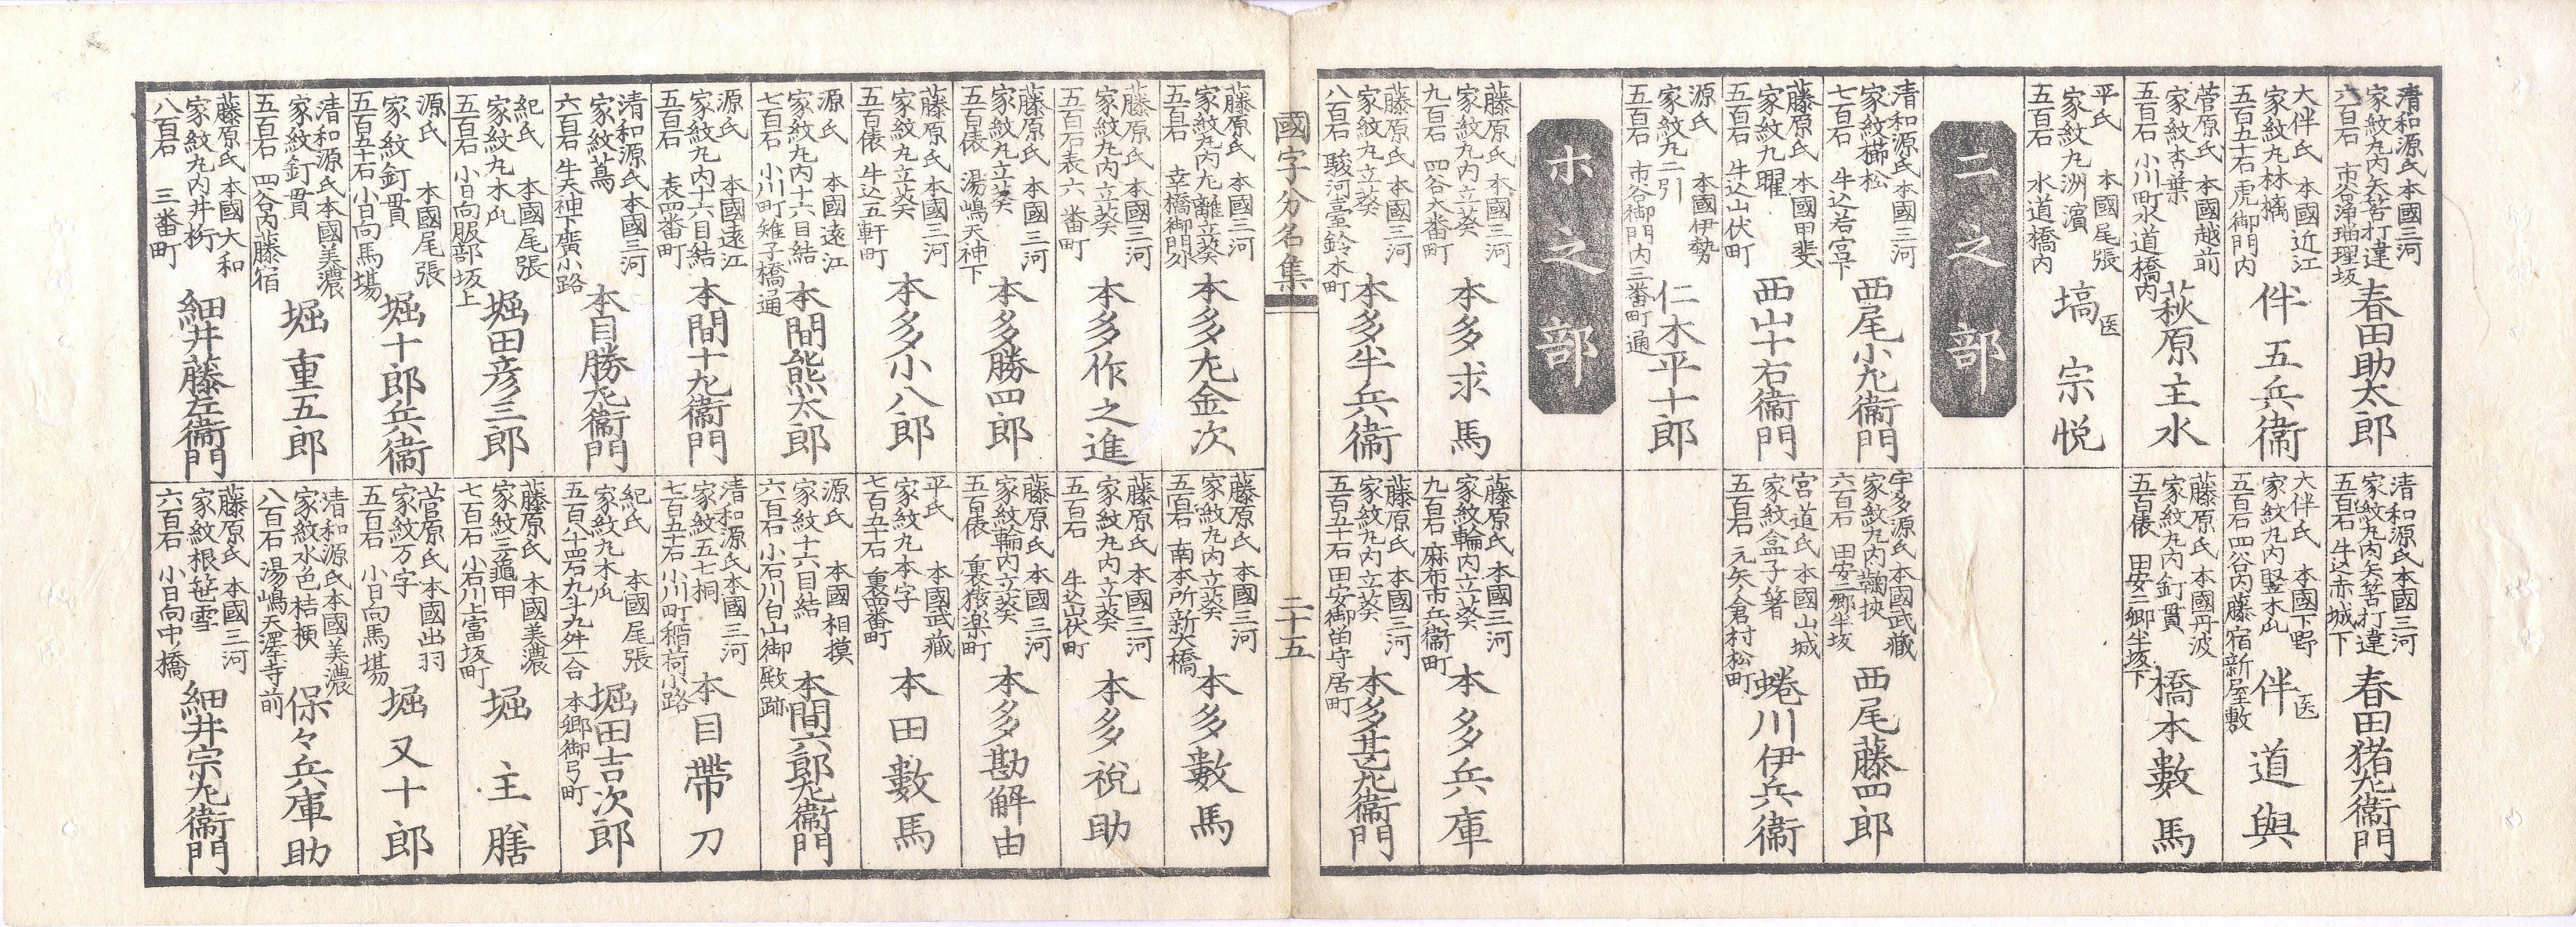 清和源氏 本國三河
家紋丸内矢筈打違
六百石 市谷浄瑠理坂
春田助太郎
大伴氏 本國近江
家紋丸林檎
五百五十石 虎御門内
伴五兵衞
菅原氏 本國越前
家紋杏葉
五百石 小川町水道橋内
萩原主水
平氏 本國尾張
家紋丸洲濱
五百石 水道橋内
塙 医 宗悦
清和源氏 本國三河
家紋丸内矢筈打違
五百石 牛込赤城下
春田猪左衞門
大伴氏 本國下野
家紋丸内竪木瓜
五百石 四谷内藤宿新屋敷
伴 医 道與
藤原氏 本國丹波
家紋丸内釘貫
五百俵 田安二郷半坂下
橋本數馬
ニ之部
清和源氏 本國三河
家紋櫛松
七百石 牛込若宮下
西尾小左衞門
藤原氏 本國甲斐
家紋九曜
五百石 牛込山伏町
西山十右衞門
源氏 本國伊勢
家紋丸二引
五百石 市谷御門内三番町通
仁木平十郎
宇多源氏 本國武藏
家紋丸内鞠挾
六百石 田安二郷半坂
西尾藤四郎
宮道氏 本國山城
家紋盒子箸
五百石 元矢ノ倉村松町
蜷川伊兵衞
ホ之部
藤原氏 本國三河
家紋丸内立葵
九百石 四谷大番町
本多求馬
藤原氏 本國三河
家紋丸立葵
八百石 駿河臺鈴木町
本多半兵衞
藤原氏 本國三河
家紋輪内立葵
九百石 麻布市兵衞町
本多兵庫
藤原氏 本國三河
家紋丸内立葵
五百五十石 田安御畄守居町
本多甚左衞門
國字分名集
二十五
藤原氏 本國三河
家紋丸内左離立葵
五百石 幸橋御門外
本多左金次
藤原氏 本國三河
家紋丸内立葵
五百石 表六番町
本多作之進
藤原氏 本國三河
家紋丸立葵
五百俵 湯嶋天神下
本多勝四郎
藤原氏 本國三河
家紋丸立葵
五百俵 牛込五軒町
本多小八郎
源氏 本國遠江
家紋丸内十六目結
七百石 小川町雉子橋通
本間熊太郎
源氏 本國遠江
家紋丸内十六目結
五百石 表四番町
本間十左衞門
清和源氏 本國三河
家紋蔦
六百石 牛天神下廣小路
本目勝左衞門
紀氏 本國尾張
家紋丸木瓜
五百石 小日向服部坂上
堀田彦三郎
源氏 本國尾張
家紋釘貫
五百五十石 小日向馬場
堀十郎兵衞
清和源氏 本國美濃
家紋釘貫
五百石 四谷内藤宿
堀重五郎
藤原氏 本國大和
家紋丸内井桁
八百石 三番町
細井藤左衞門
藤原氏 本國三河
家紋丸内立葵
五百石 南本所新大橋
本多數馬
藤原氏 本國三河
家紋丸内立葵
五百石 牛込山伏町
本多祝助
藤原氏 本國三河
家紋輪内立葵
五百俵 裏猿楽町
本多勘解由
平氏 本國武藏
家紋丸本字
七百五十石 裏四番町
本田數馬
源氏 本國相摸
家紋十六目結
六百石 小石川白山御殿跡
本間六郎左衞門
清和源氏 本國三河
家紋五七桐
七百五十石 小川町稲荷小路
本目帶刀
紀氏 本國尾張
家紋丸木瓜
五百八十四石九斗九舛一合 本郷御弓町
堀田吉次郎
藤原氏 本國美濃
家紋三龜甲
七百石 小石川上富坂町
堀主膳
菅原氏 本國出羽
家紋万字
五百石 小日向馬場
堀又十郎
清和源氏 本國美濃
家紋水色桔梗
八百石 湯嶋天澤寺前
保々兵庫助
藤原氏 本國三河
家紋根笹雪
六百石 小日向中橋
細井宗左衞門